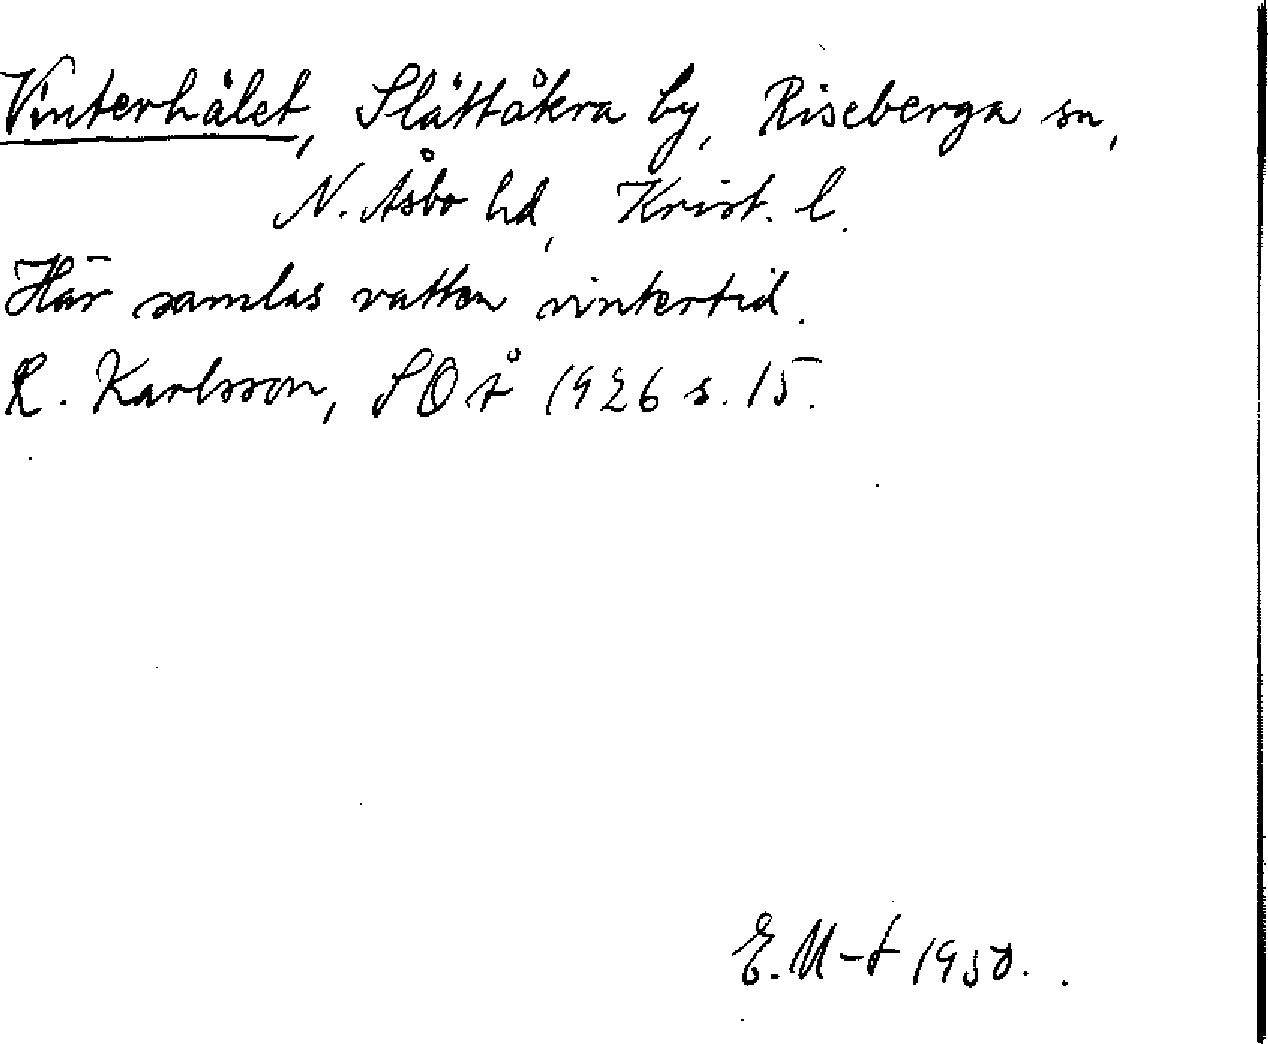 Vinterhålet, Slättåkra by, Riseberga sn,
N. Åsbo hd, Krist. l.
Här samlas vatten vintertid.
R. Karlsson, SOÅ 1926 s. 15.
E. M-t 1950.